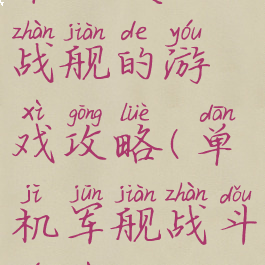 zhàn jiàn de yóu
战舰的游
xì gōng lüè dān
戏攻略(单
jī jūn jiàn zhàn dòu
机军舰战斗